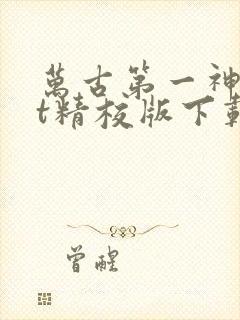 萬古第一神
t精校版下載
曾醒